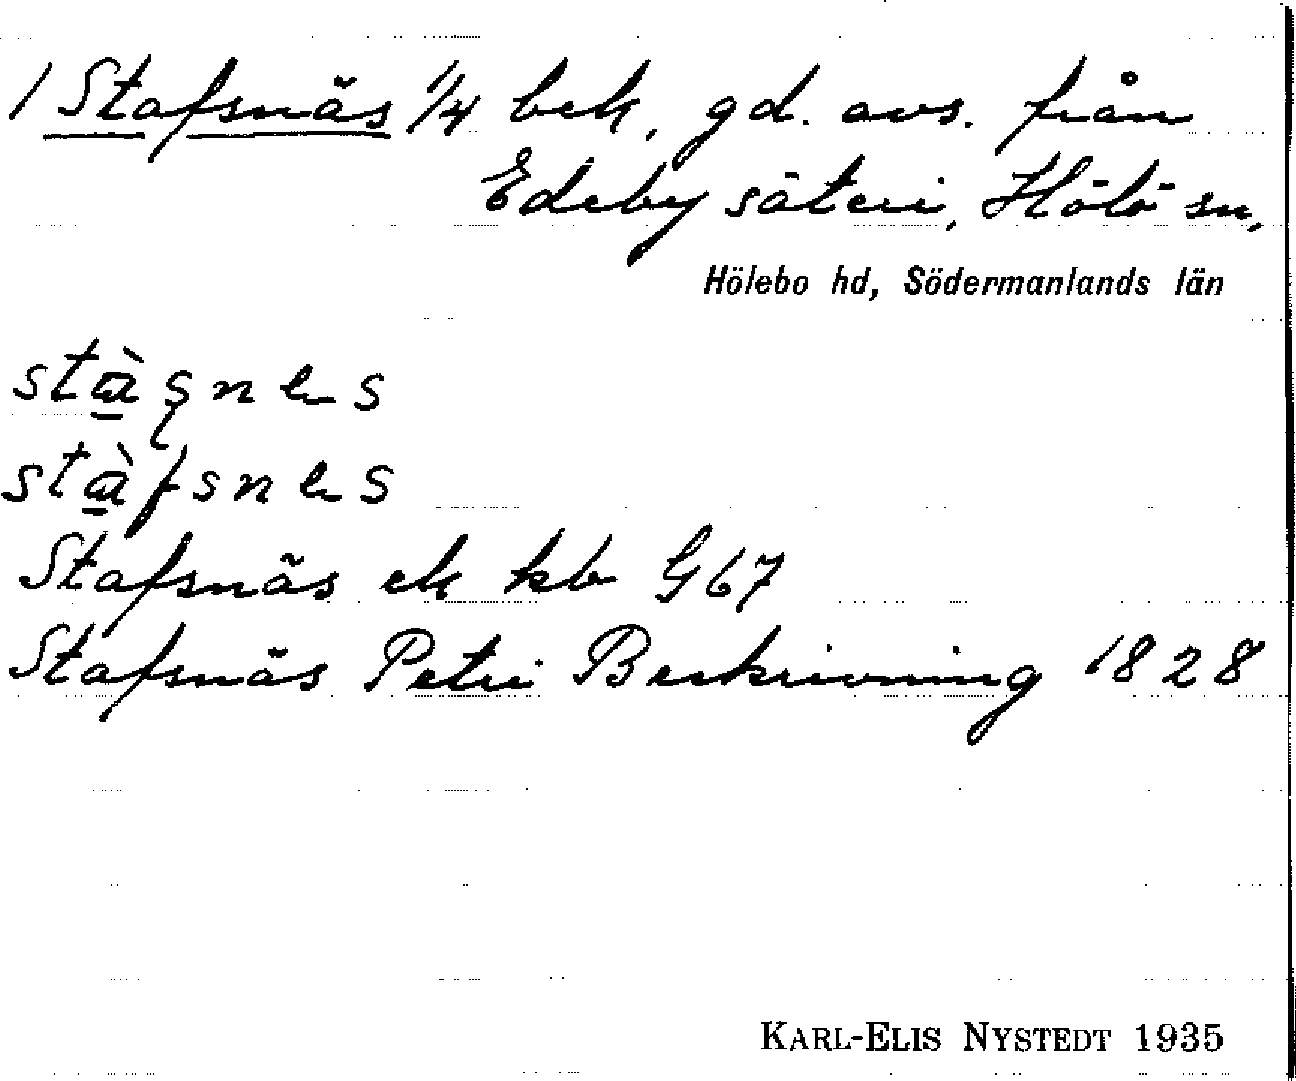 1 Stafsnäs 1/4 bek, gd. avs. från
Edeby säteri, Hölö sn,
Hölebo hd, Södermanlands län
Stafsnäs ek kb G67
Stafsnäs Petri Beskrivning 1828
KARL-ELIS NYSTEDT 1935